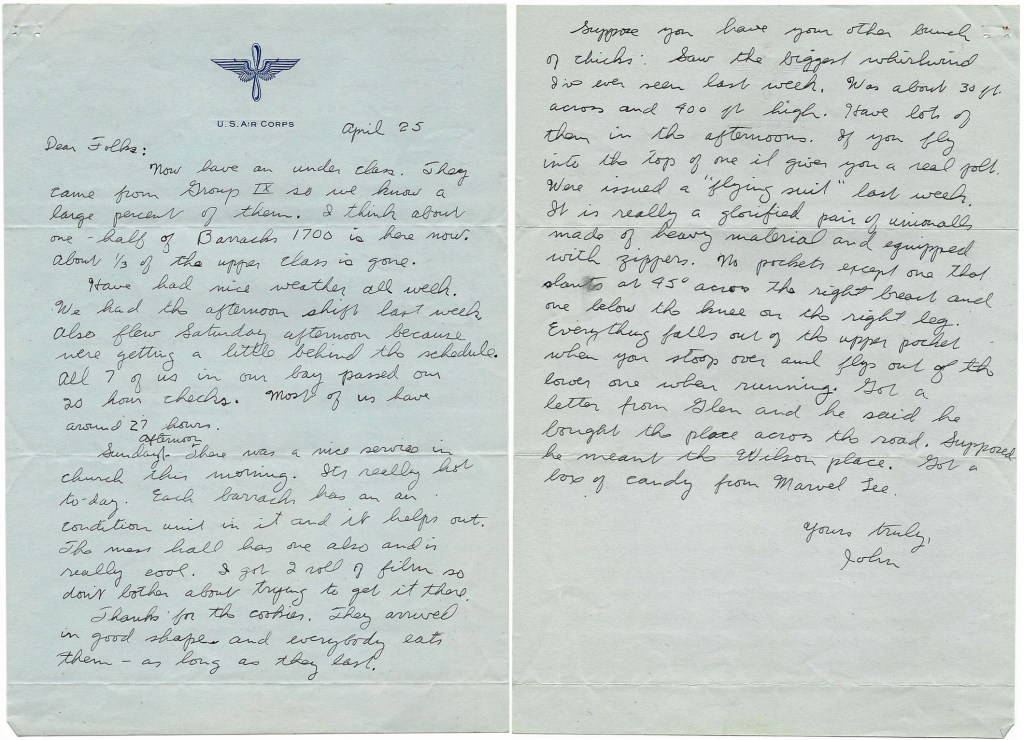 U.S. AIR CORPS
April 25
Dear Folks:
Now have an under class. They
came from Group IX so we know a
large percent of them. I think about
one-half of Barracks 1700 is here now.
About 1/3 of the upper class is gone.
Have had nice weather all week.
We had the afternoon shift last week
Also flew Saturday afternoon because
were getting a little behind the schedule.
All 7 of us in our bay passed our
20 hour checks. Most of us have
around 27 hours.
afternoon
Sunday. There was a nice service in
church this morning. Its really hot
to-day. Each barracks has an air
condition unit in it and it helps out.
The mess hall has one also and is
really cool. I got 2 roll of film so
don't bother about trying to get it there.
Thanks for the cookies. They arrived
in good shape and everybody eats
them - as long as they last.
Suppose you have your other bunch
of chicks. Saw the biggest whirlwind
I've ever seen last week. Was about 30 ft.
across and 400 ft high. Have lots of
them in the afternoons. If you fly
into the top of one it gives you a real jolt.
Were issued a "flying suit" last week.
It is really a glorified pair of unionalls
made of heavy material and equipped
with zippers. No pockets except one that
slants at 45° across the right breast and
one below the knee on the right leg.
Everything falls out of the upper pocket
when you stoop over and flys out of the
lower one when running. Got a
letter from Glen and he said he
bought the place across the road. Supposed
he meant the Wilson place. Got a
box of candy from Marvel Lee.
Yours truly,
John